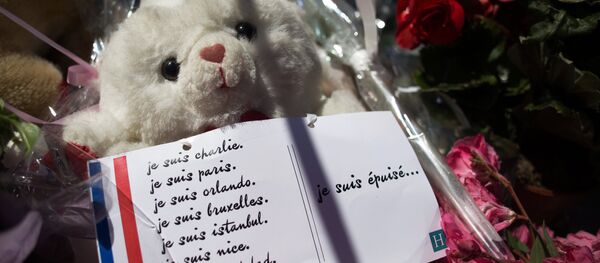 je suis charlie.
je suis paris.
je suis orlando.
je suis bruxelles.
je suis istanbul.
je suis nice.
je suis épuisé...
H